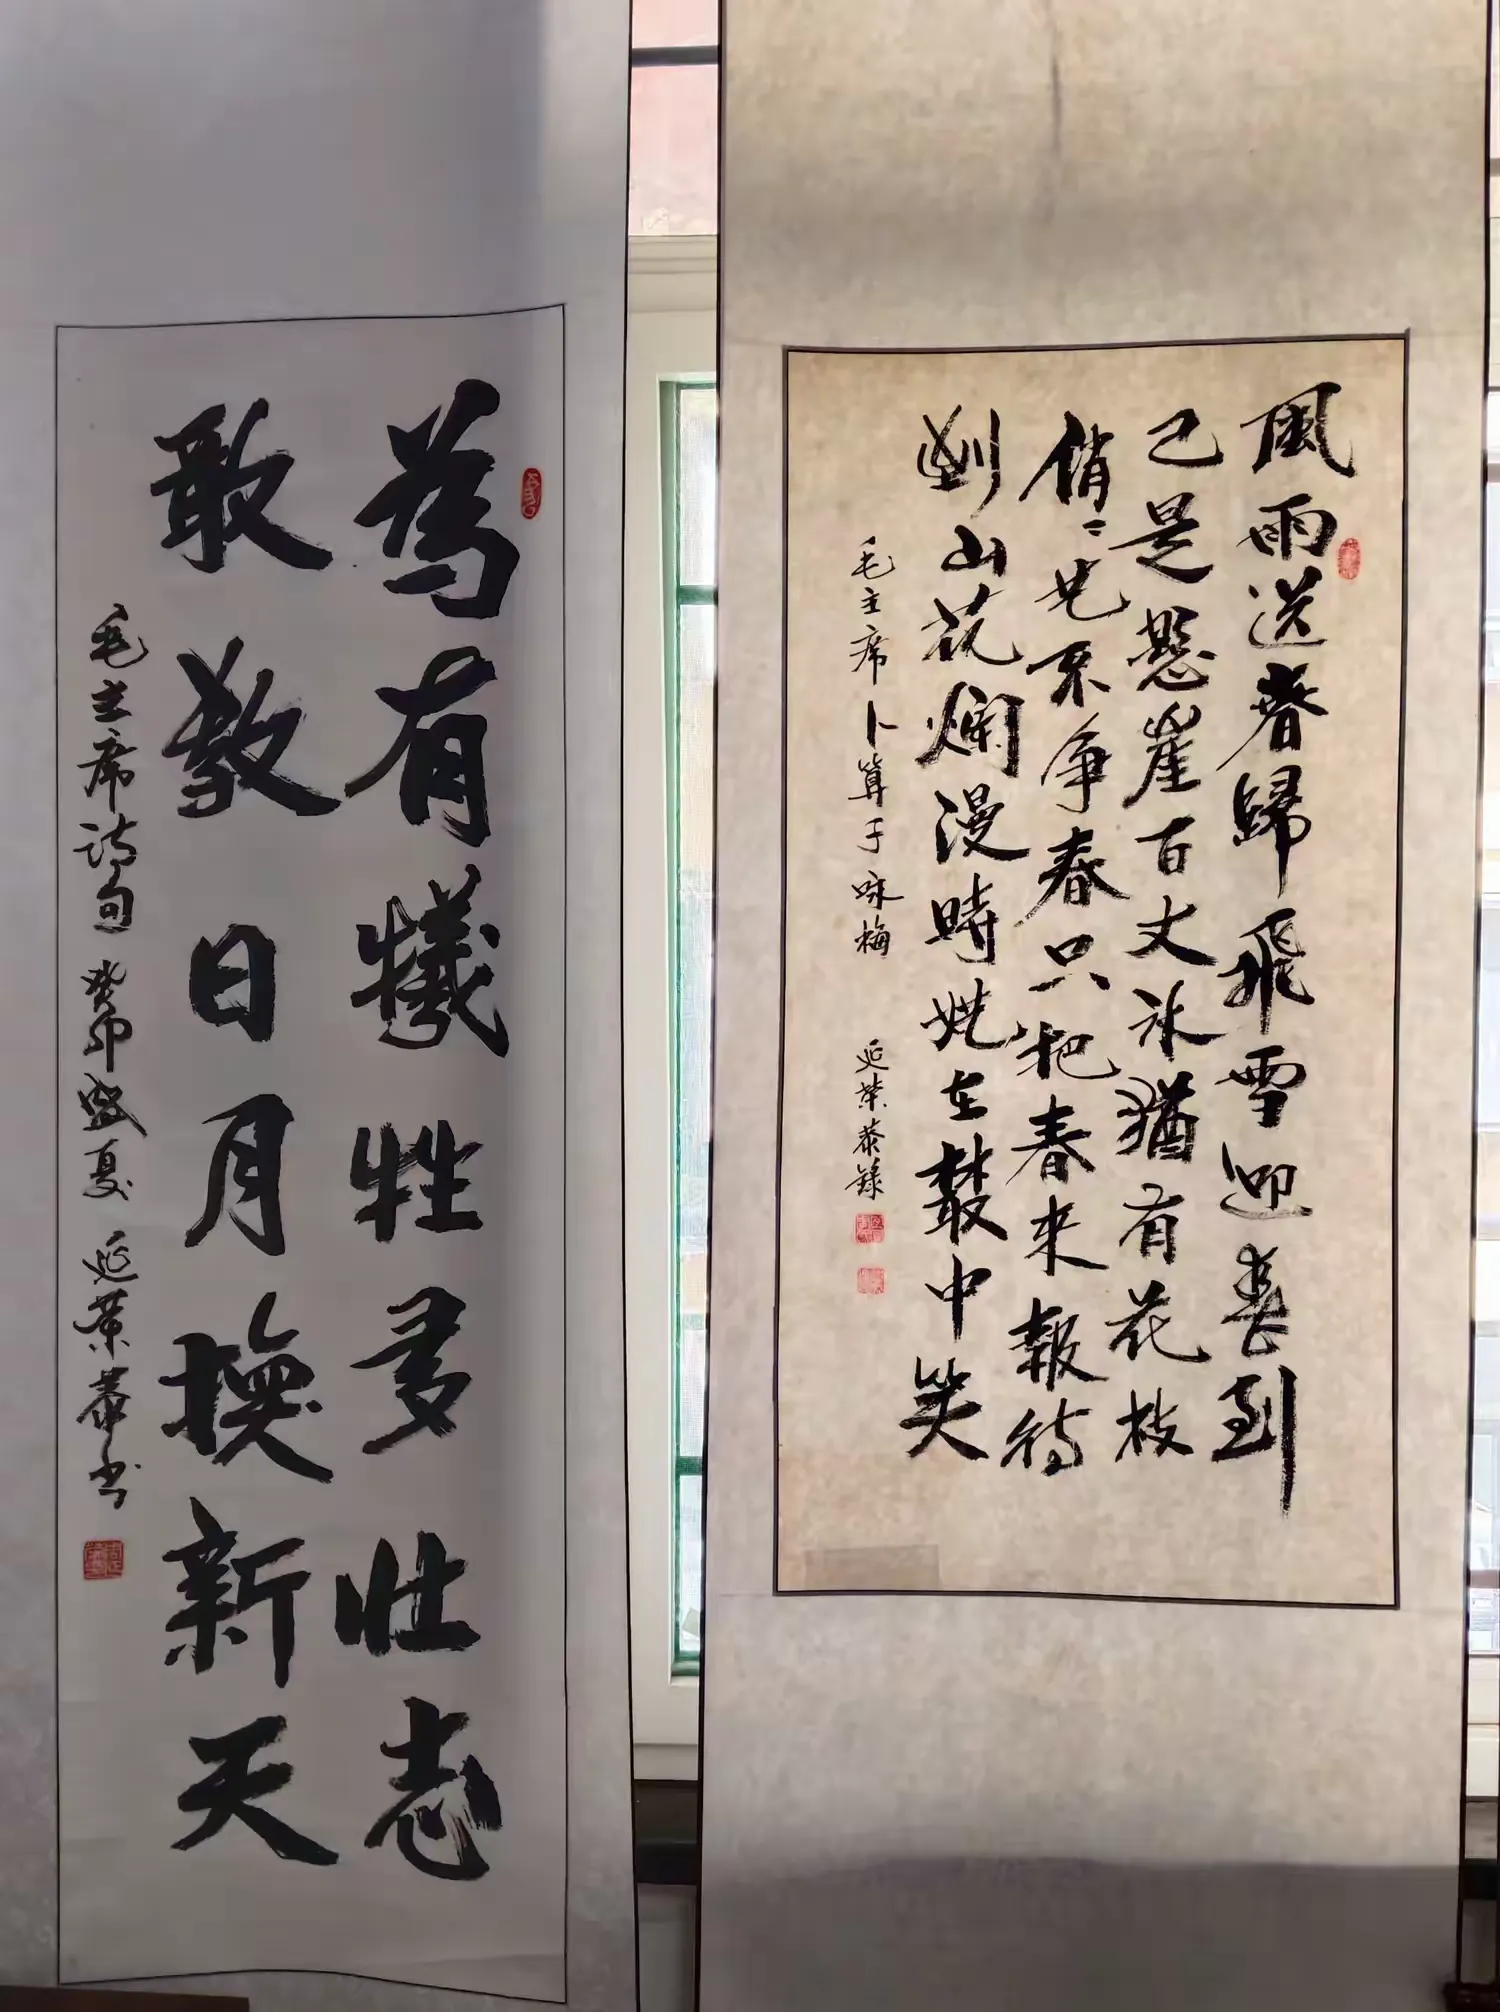 風雨送春歸飛雪迎春到
已是懸崖百丈冰猶有花枝
俏〻也不争春只把春來報待
到山花爛漫時她在叢中笑
毛主席卜算子咏梅 延榮恭錄
為有犧牲多壯志
敢教日月換新天
毛主席诗句 癸卯盛夏 延榮恭书